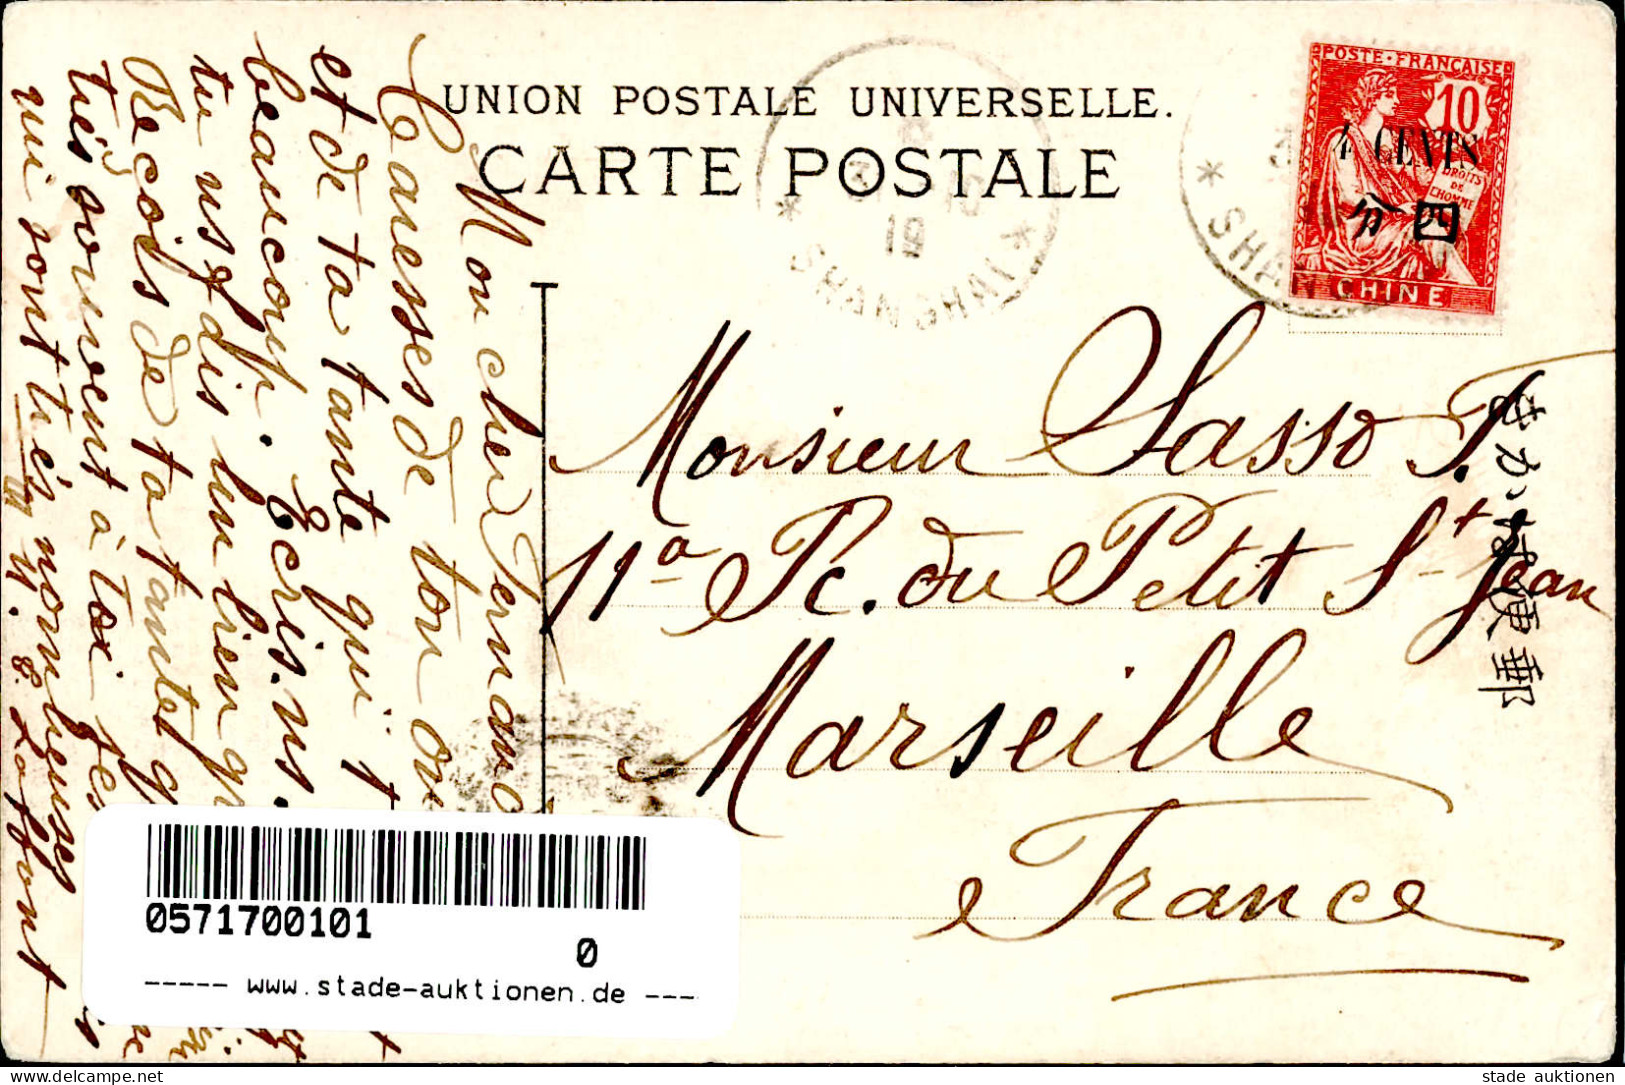 UNION POSTALE UNIVERSELLE.
CARTE POSTALE
POSTE·FRANÇAISE
10
4 CENTS
DROITS
DE
L'HOMME
分 四
CHINE
* SHANGHAI *
19
* SHAN
郵便はがき
Monsieur Sasso F.
11a R. du Petit St Jean
Marseille
France
Mon cher Fernand
Caresses de ton on
et de ta tante qui t
beaucoup. Ecris-
tu us dis lien
Reçois de ta tante
très souvent à toi
qui sont très nombreuses
Laffont
0571700101
0
----- www.stade-auktionen.de ---
www.delcampe.net
stade auktionen